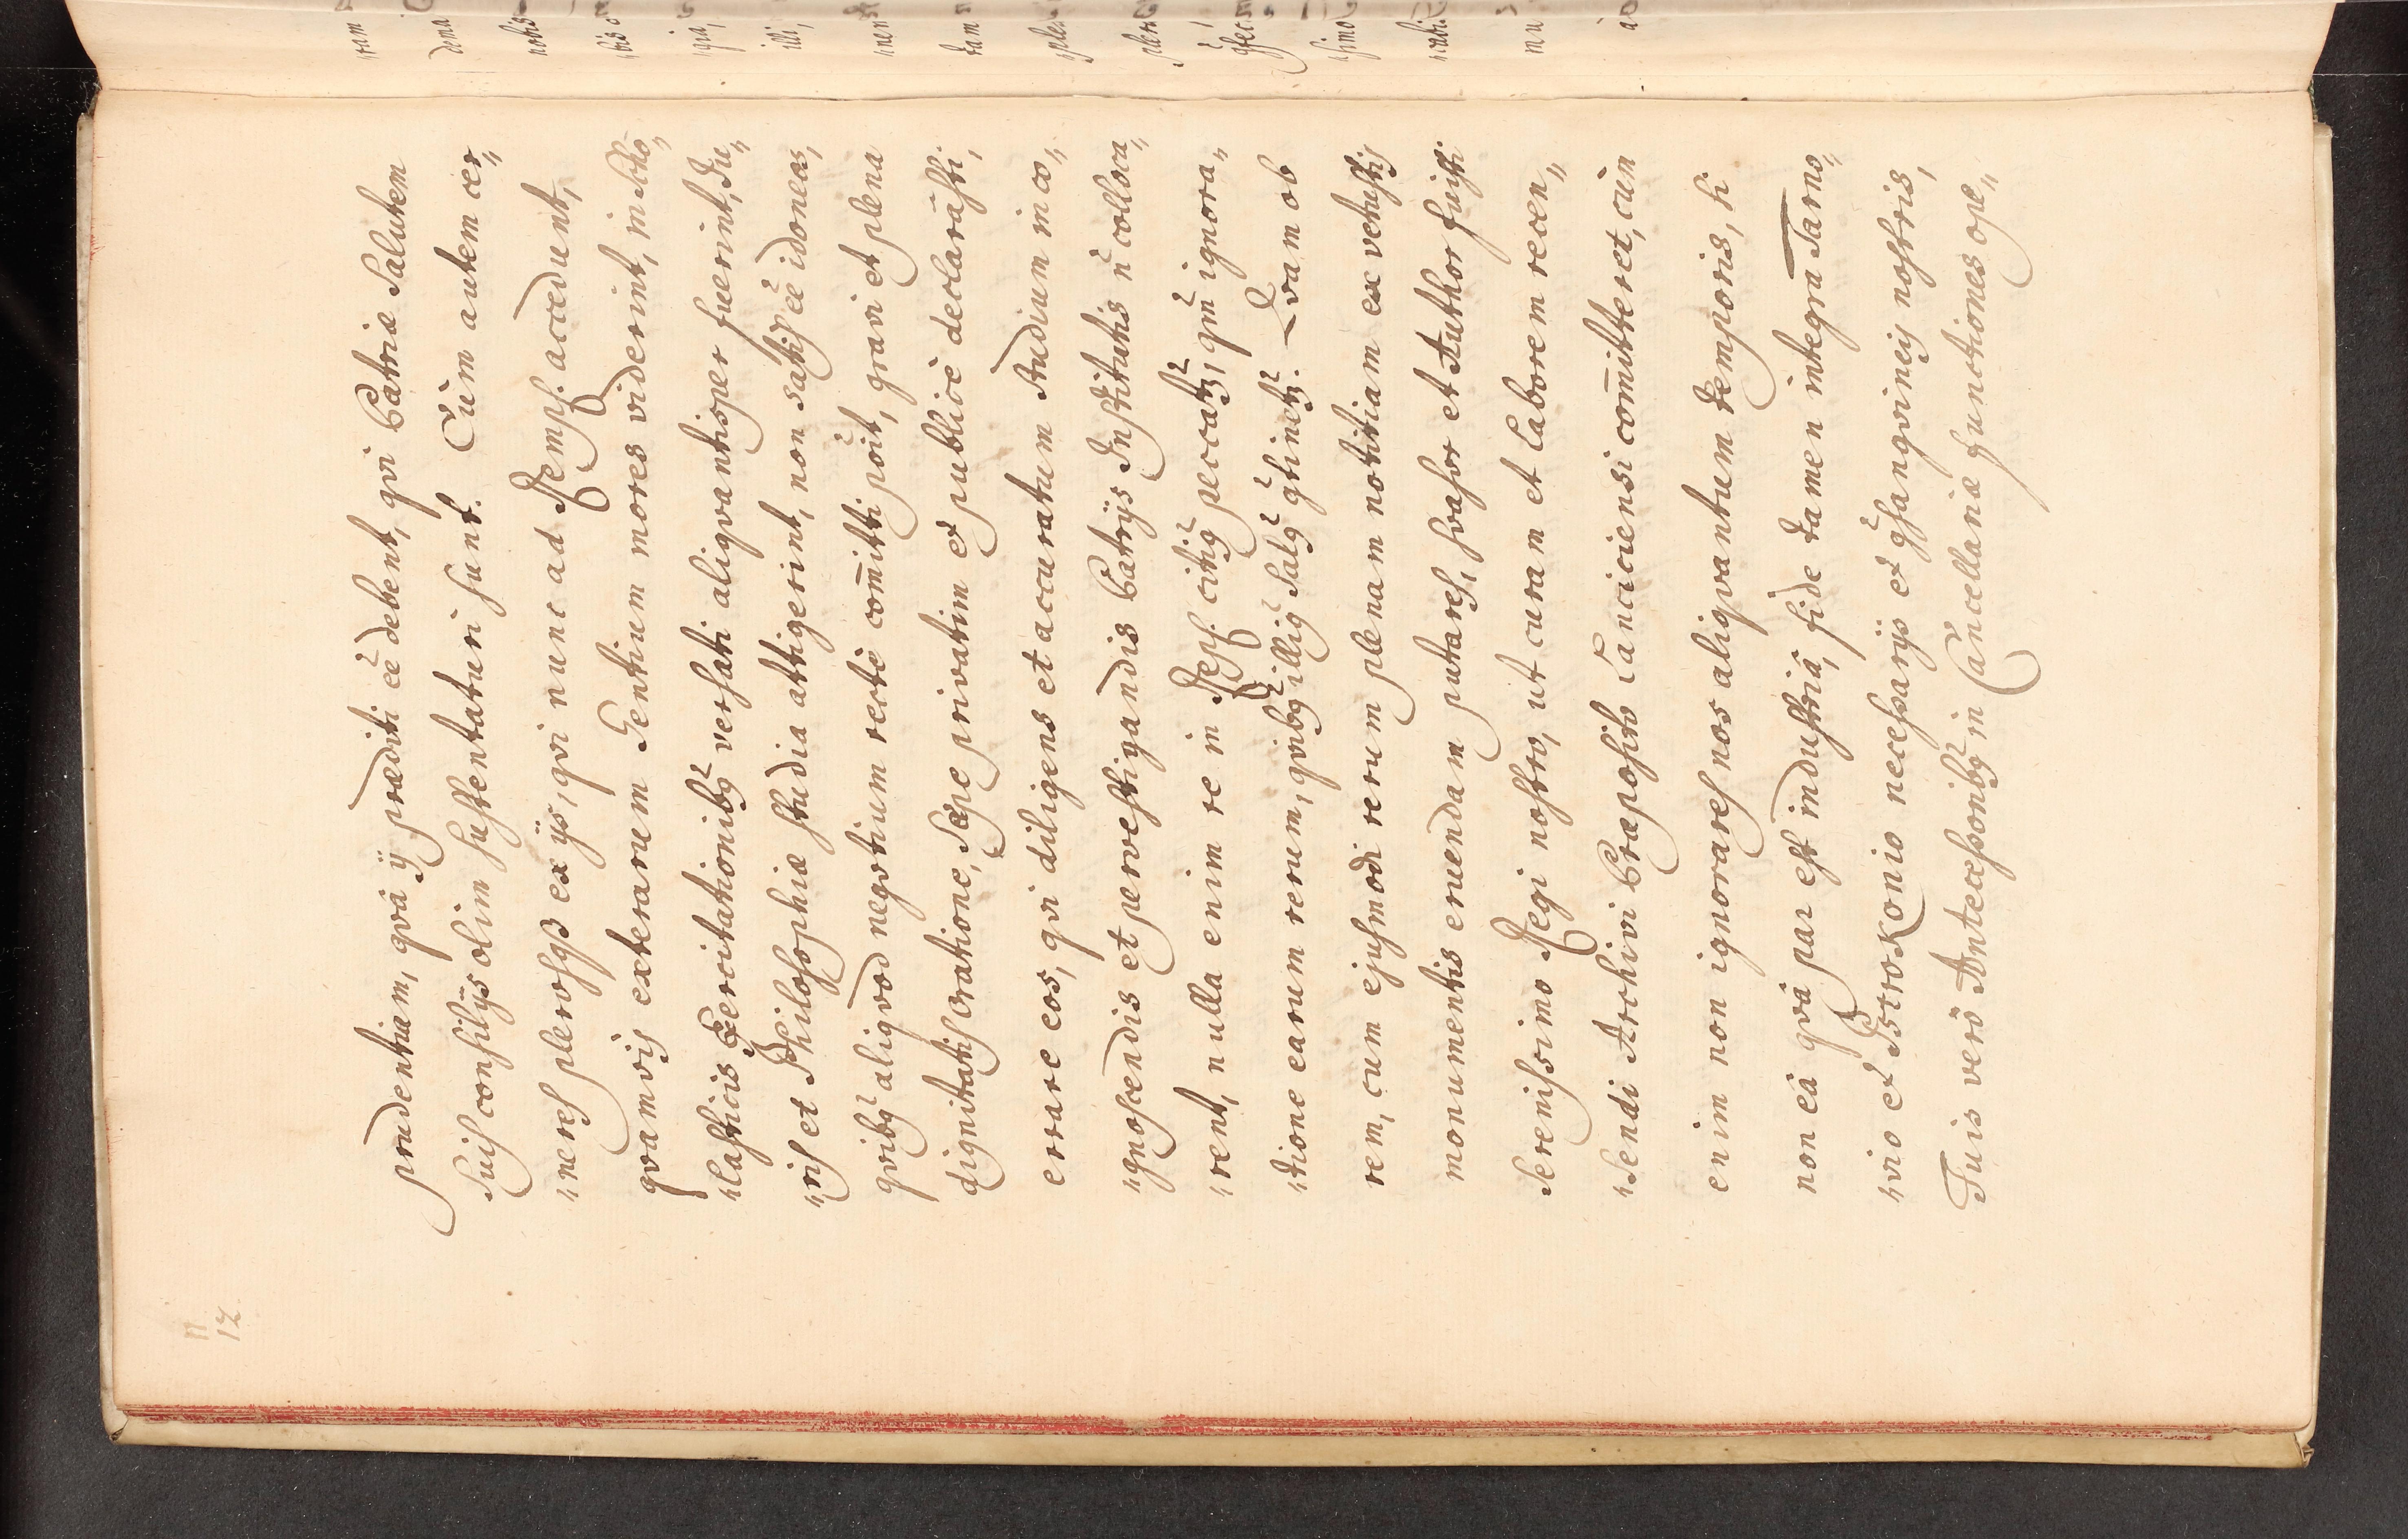 prudentiam, qvâ ij præditi eê debent, qvi Patriæ Salutem
Suis consilijs olim sustentaturi sunt. Cùm autem cer„
„neres plerosq̃ß ex ijs, qvi nunc ad Remp. accedunt,
qvamvis exterarum Gentium mores viderint, in Scho„
„lasticis Exercitationibq̃ versati aliqvantisper fuerint, Iu„
„ris et Philosophiæ studia attigerint, non satis eê idoneas,
qvibq̃ aliqvod negotium recte com̄itti poit, gravi et plena
dignitatis oratione, Sæpe privatim et publicè declarasti,
errare eos, qvi diligens et accuratum Studium in co„
„gnoscendis et pervestigandis Patrijs Institutis n̄ colloca„
„rent, nulla enim re in Rep. citiq̃ peccatȝ, qm̄ ignora„
„tione earum rerum, qvibq̃ illiq̃ Salq̃ q̃tinetȝ. Qvam ob
rem, cum ejusmodi rerum plenam notitiam ex vetustis
monumentis eruendam putares, svasor et Author fuisti
Serenissimo Regi nostro, ut curam et laborem recen„
„sendi Archivi Præposito Lanciciensi com̄itteret, cùm
enim non ignorares nos aliqvantum temporis, si
non eâ qvâ par est industriâ, fide tamen integra Tarno„
„vio et Ostrokonio necessarijs et q̃sangvineis nostris,
Tuis verò Antecessonibq̃ in Cancellariæ functiones ope„
11
12